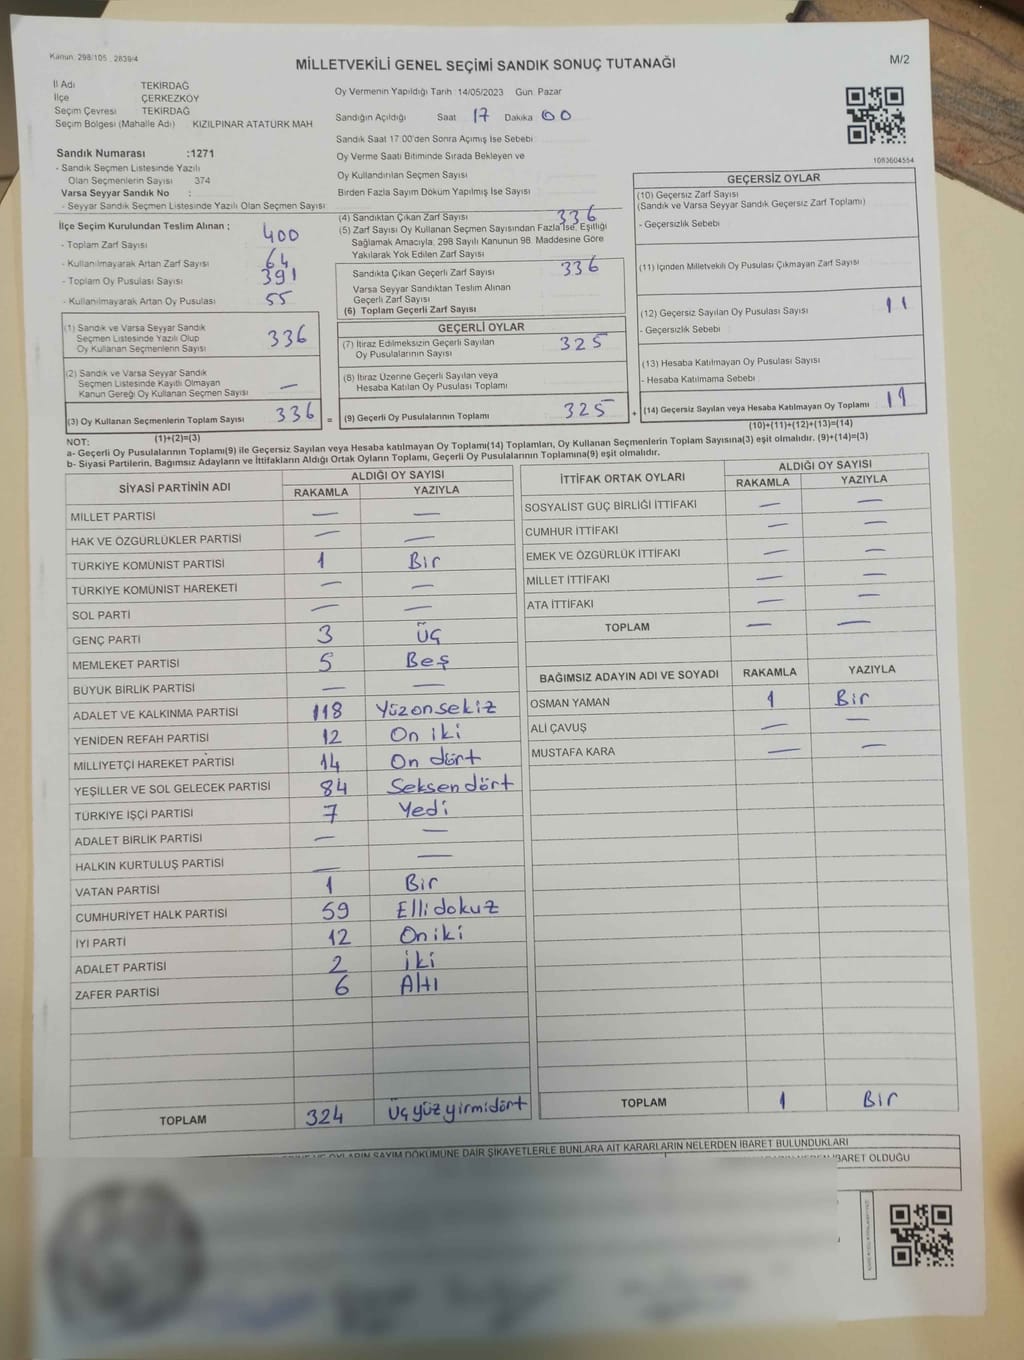 Kanun: 298/105, 2839/4
MİLLETVEKİLİ GENEL SEÇİMİ SANDIK SONUÇ TUTANAĞI
M/2
İl Adı TEKİRDAĞ
İlçe ÇERKEZKÖY
Seçim Çevresi TEKİRDAĞ
Seçim Bölgesi (Mahalle Adı) KIZILPINAR ATATÜRK MAH
Oy Vermenin Yapıldığı Tarih: 14/05/2023 Gün: Pazar
Sandığın Açıldığı Saat 17 Dakika 00
Sandık Saat 17:00'den Sonra Açımış İse Sebebi
Oy Verme Saati Bitiminde Sırada Bekleyen ve
Oy Kullandırılan Seçmen Sayısı
Birden Fazla Sayım Döküm Yapılmış İse Sayısı
1083604554
Sandık Numarası :1271
- Sandık Seçmen Listesinde Yazılı
Olan Seçmenlerin Sayısı 374
Varsa Seyyar Sandık No :
- Seyyar Sandık Seçmen Listesinde Yazılı Olan Seçmen Sayısı:
İlçe Seçim Kurulundan Teslim Alınan ;
- Toplam Zarf Sayısı 400
- Kullanılmayarak Artan Zarf Sayısı 64
- Toplam Oy Pusulası Sayısı 391
- Kullanılmayarak Artan Oy Pusulası 55
(1) Sandık ve Varsa Seyyar Sandık
Seçmen Listesinde Yazılı Olup
Oy Kullanan Seçmenlerin Sayısı 336
(2) Sandık ve Varsa Seyyar Sandık
Seçmen Listesinde Kayıtlı Olmayan
Kanun Gereği Oy Kullanan Seçmen Sayısı —
(3) Oy Kullanan Seçmenlerin Toplam Sayısı 336 =
(1)+(2)=(3)
(4) Sandıktan Çıkan Zarf Sayısı 336
(5) Zarf Sayısı Oy Kullanan Seçmen Sayısından Fazla İse, Eşitliği
Sağlamak Amacıyla, 298 Sayılı Kanunun 98. Maddesine Göre
Yakılarak Yok Edilen Zarf Sayısı
Sandıkta Çıkan Geçerli Zarf Sayısı 336
Varsa Seyyar Sandıktan Teslim Alınan
Geçerli Zarf Sayısı
(6) Toplam Geçerli Zarf Sayısı
GEÇERLİ OYLAR
(7) İtiraz Edilmeksizin Geçerli Sayılan
Oy Pusulalarının Sayısı 325
(8) İtiraz Üzerine Geçerli Sayılan veya
Hesaba Katılan Oy Pusulası Toplamı
(9) Geçerli Oy Pusulalarının Toplamı 325 +
GEÇERSİZ OYLAR
(10) Geçersiz Zarf Sayısı
(Sandık ve Varsa Seyyar Sandık Geçersiz Zarf Toplamı)
- Geçersizlik Sebebi
(11) İçinden Milletvekili Oy Pusulası Çıkmayan Zarf Sayısı
(12) Geçersiz Sayılan Oy Pusulası Sayısı 11
- Geçersizlik Sebebi
(13) Hesaba Katılmayan Oy Pusulası Sayısı
- Hesaba Katılmama Sebebi
(14) Geçersiz Sayılan veya Hesaba Katılmayan Oy Toplamı 11
(10)+(11)+(12)+(13)=(14)
NOT:
a- Geçerli Oy Pusulalarının Toplamı(9) ile Geçersiz Sayılan veya Hesaba katılmayan Oy Toplamı(14) Toplamları, Oy Kullanan Seçmenlerin Toplam Sayısına(3) eşit olmalıdır. (9)+(14)=(3)
b- Siyasi Partilerin, Bağımsız Adayların ve İttifakların Aldığı Ortak Oyların Toplamı, Geçerli Oy Pusulalarının Toplamına(9) eşit olmalıdır.
SİYASİ PARTİNİN ADI ALDIĞI OY SAYISI
RAKAMLA YAZIYLA
MİLLET PARTİSİ — —
HAK VE ÖZGÜRLÜKLER PARTİSİ — —
TÜRKİYE KOMÜNİST PARTİSİ 1 Bir
TÜRKİYE KOMÜNİST HAREKETİ — —
SOL PARTİ — —
GENÇ PARTİ 3 Üç
MEMLEKET PARTİSİ 5 Beş
BÜYÜK BİRLİK PARTİSİ — —
ADALET VE KALKINMA PARTİSİ 118 Yüzonsekiz
YENİDEN REFAH PARTİSİ 12 On iki
MİLLİYETÇİ HAREKET PARTİSİ 14 On dört
YEŞİLLER VE SOL GELECEK PARTİSİ 84 Seksendört
TÜRKİYE İŞÇİ PARTİSİ 7 Yedi
ADALET BİRLİK PARTİSİ — —
HALKIN KURTULUŞ PARTİSİ — —
VATAN PARTİSİ 1 Bir
CUMHURİYET HALK PARTİSİ 59 Ellidokuz
İYİ PARTİ 12 Oniki
ADALET PARTİSİ 2 İki
ZAFER PARTİSİ 6 Altı
TOPLAM 324 Üçyüzyirmidört
İTTİFAK ORTAK OYLARI ALDIĞI OY SAYISI
RAKAMLA YAZIYLA
SOSYALİST GÜÇ BİRLİĞİ İTTİFAKI — —
CUMHUR İTTİFAKI — —
EMEK VE ÖZGÜRLÜK İTTİFAKI — —
MİLLET İTTİFAKI — —
ATA İTTİFAKI — —
TOPLAM — —
BAĞIMSIZ ADAYIN ADI VE SOYADI RAKAMLA YAZIYLA
OSMAN YAMAN 1 Bir
ALİ ÇAVUŞ — —
MUSTAFA KARA — —
TOPLAM 1 Bir
OYLARIN SAYIM DÖKÜMÜNE DAİR ŞİKAYETLERLE BUNLARA AİT KARARLARIN NELERDEN İBARET BULUNDUKLARI
İBARET OLDUĞU